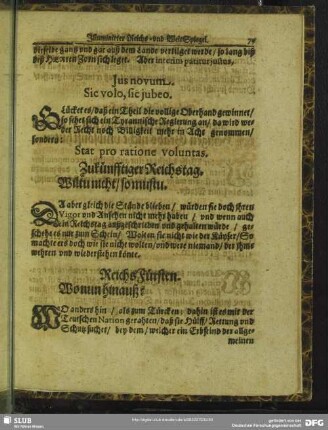 Illuminirter Reichs- vnd Welt-Spiegel.
dieselbe gantz vnd gar auß dem Lande vertilget werde / so lang biß
deß HErren Zorn sich leget. Aber interim patitur justus.
Jus novum.
Sic volo, sic jubeo.
GLücket es / daß ein Theil die völlige Oberhand gewinnet /
so sehet sich ein Tyrannische Regierung an / da wird we-
der Recht noch Billigkeit mehr in Acht genommen /
sondern:
Stat pro ratione voluntas.
Zukünfftiger Reichstag.
Wiltu nicht / so mustu.
DA aber gleich die Stände blieben / würden sie doch ihren
Vigor vnd Ansehen nicht mehr haben / vnd wenn auch
ein Reichstag außgeschrieben vnd gehalten würde / ge-
schehe es nur zum Schein / Wolten sie nicht wie der Käyser / So
machte er es doch wie sie nicht wolten / vnd were niemand / der ihms
wehren vnd wiederstehen könte.
Reichs Fürsten.
Wo nun hinauß?
WO anders hin / als zum Türcken: dahin ist es mit der
Teutschen Nation gerahten / daß sie Hülff / Rettung vnd
Schutz suchet / bey dem / welcher ein Erbfeind der allge-
meinen
SLUB
Wir führen Wissen.
http://digital.slub-dresden.de/
gefördert von der
Deutschen Forschungsgemeinschaft
DFG